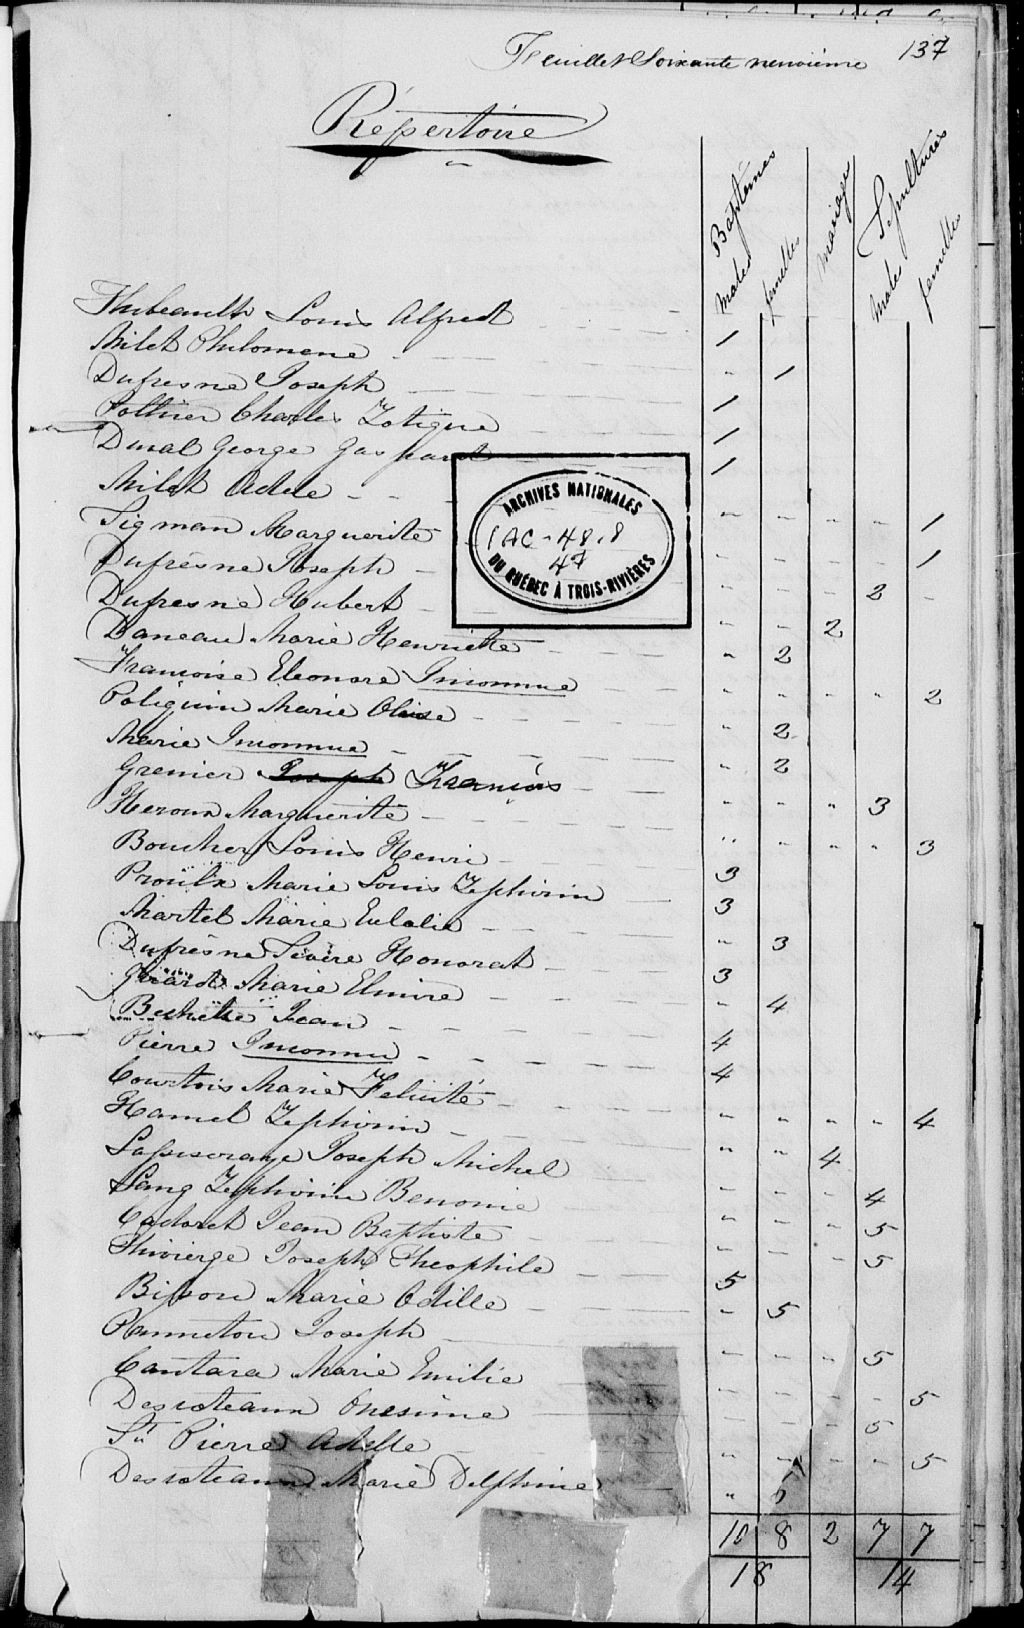 Feuillet Soixante neuvième 137
Répertoire
Baptêmes mariage Sépultures
males femelles males femelles
Thibeault Louis Alfred 1
Milet Philomene " 1
Dufresne Joseph 1
Pothier Charles Zotique 1
Duval George Gaspard 1
Milet Adele - - " - - - 1
Sigman Marguerite - - - - 1
Dufresne Joseph - - - - 2 -
Dufresne Hubert - " - 2
Daneau Marie Henriette " 2
Francoise Eleonore Inconnue " " " " 2
Poliquin Marie Olise " 2
Marie Inconnue " 2
Grenier Joseph Francois " " " 3
Heroux Marguerite " " " " 3
Boucher Louis Henri 3
Proulx Marie Louis Zephirin 3
Martel Marie Eulalie " 3
Dufresne Sévère Honorat 3
Girard Marie Elmire " 4
Bechette Jean 4
Pierre Inconnu 4
Courtois Marie Félicité " " " " 4
Hamel Zephirin " " 4
Joseph Michel - - - 4
Lang Zephirin Benonie " - - 5
Cadoret Jean Baptiste - - - 5
Thivierge Joseph Theophile 5
Bisson Marie Odille " 5
Panneton Joseph - - " 5
Cantara Marie Emilie - - - - 5
Desroteaux Onesime - - - 5
St Pierre Adelle " - - " 5
Desroteaux Marie Delphine " 5
10 8 2 7 7
18 14
ARCHIVES NATIONALES
1AC-48.8
47
DU QUÉBEC À TROIS-RIVIÈRES